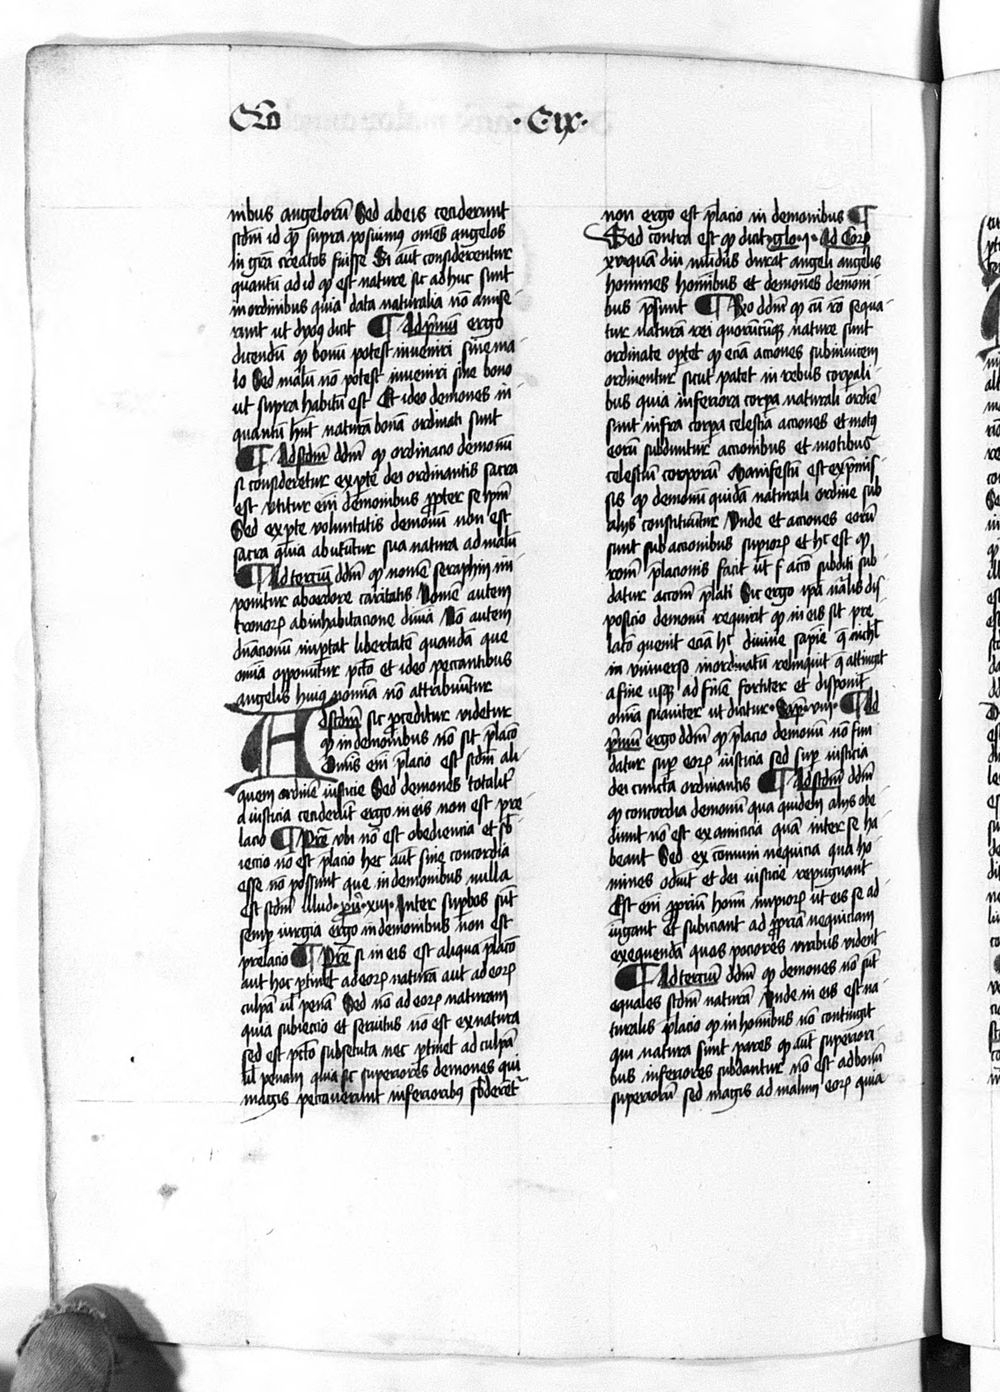 Qo
·Cix·
nibus angelorũ Sed ab eis ceciderunt
scdm id qđ supra posuimus omẽs angelos
in grã creatos fuisse Si aut̃ considerentur
quantũ ad id qđ est nature sic adhuc sunt
in ordinibus quia data naturalia nõ amise
runt ut dyoñ dicit ¶ Ad pͥmum ergo
dicendũ qđ bonũ potest inveniri sine ma
lo Sed malũ nõ potest inveniri sine bono
ut supra habitũ est Et ideo demones in
quantũ hñt naturã bonã ordinati sunt
¶ Ad scdm ddm̃ qđ ordinacio demonũ
si consideretur ex pͣte dei ordinantis sacra
est utitur eñi demonibus ꝓpter se ipm̃
Sed ex pͣte voluntatis demonũ non est
sacra quia abutũtur sua natura ad malũ
¶ Ad tercium ddm̃ qđ nomẽ seraphin im
ponitur ab ardore caritatis Nomẽ autem
tronoꝝ ab inhabitacione divina Nõ autem
dñacionũ importat libertatẽ quandã que
omnia opponũtur pctõ et ideo peccantibus
angelis huiꝰ nomina nõ attribuũtur
Ad scdm sic ꝓceditur videtur
qđ in demonibus nõ sit pͣlacõ
Omnis eñi pͣlacio est scdm ali
quem ordinẽ iusticie Sed demones totalit̃
a iusticia ceciderũt ergo in eis non est pre
lacio ¶ Pret̃ ubi nõ est obediencia et sb̃
ieccio nõ est pͣlacio hec aut̃ sine concordia
esse nõ possunt que in demonibus nulla
est scdm illud · ꝓũ · xiii · Inter supbos sũt
semp̃ iurgia ergo in demonibus non est
prelacio ¶ Pret̃ si in eis est aliqua pͣlacõ
aut hoc ptinet ad eoꝝ naturã aut ad eoꝝ
culpã ul̃ penã Sed nõ ad eoꝝ naturam
quia subieccio et servitus nõ est ex natura
sed est pctõ subsecuta nec ptinet ad culpã
ul̃ penam quia sic superiores demones qui
magis peccaverunt inferioribꝰ sb̃derẽt̃
non ergo est pͣlacio in demonibus ¶
Sed contra est qđ dicit glo · i · ad Coꝝ
xv quam diu mũdus durat angeli angelis
homines homĩbus et demones demoni
bus pͣsunt ¶ Rõ ddm̃ qđ cũ cõ sequa
tur naturã rei quorũcũqꝫ nature sunt
ordinate optet qđ eciã acciones subinvicem
ordinentur sicut patet in rebus corpali
bus quia inferiora corpa naturali ordĩe
sunt infra corpa celestia acciones et motꝰ
eorũ subduntur accionibus et motibus
celestiũ corporum Manifestũ est ex pͣmis
sis qđ demonũ quidã naturali ordine sub
aliis constituũtur Unde et acciones eorũ
sunt sub accionibus supioꝝ et hͨ est qđ
rom̃ pͣlacionis facit ut ſ accõ subditi sub
datur accioni pͣlati Sic ergo ipã nãlis dis
posicio demonũ requirit qđ in eis sit pre
lacõ quenit eciã hͨ divine sapiẽ q̃ nichil
in universo inordinatũ relinquit q̃ attingit
a fine usqꝫ ad finẽ fortiter et disponit
omnia suaviter ut dicitur · Sap · viii · ¶ Ad
pͥmum ergo ddm̃ qđ pͣlacio demonũ nõ fun
datur sup̃ eoꝝ iusticia sed sup̃ iusticia
dei cuncta ordinantis ¶ Ad scdm ddm̃
qđ concordia demonũ qua quidem aliis obe
diunt nõ est ex amicicia quã inter se ha
beant Sed ex comuni nequicia qua ho
mines odiũt et dei iusticie repugnant
Est eñi ꝓpriũ homĩ impioꝝ ut eis se ad
iungant et subiciant ad ꝓpriam nequiciam
exequendã quos pociores viribus vident̃
¶ Ad tercium ddm̃ qđ demones nõ sũt
equales scdm naturã Unde in eis est na
turalis pͣlacio qđ in homĩbus nõ contingit
qui natura sunt pares qđ aut̃ superiori
bus inferiores subdantur nõ est ad bonũ
superiorũ sed magis ad malum eoꝝ quia